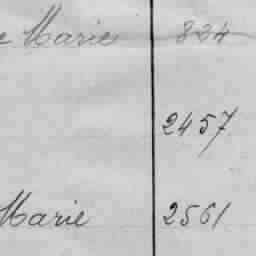 e Marie 824
2457
Marie 2561